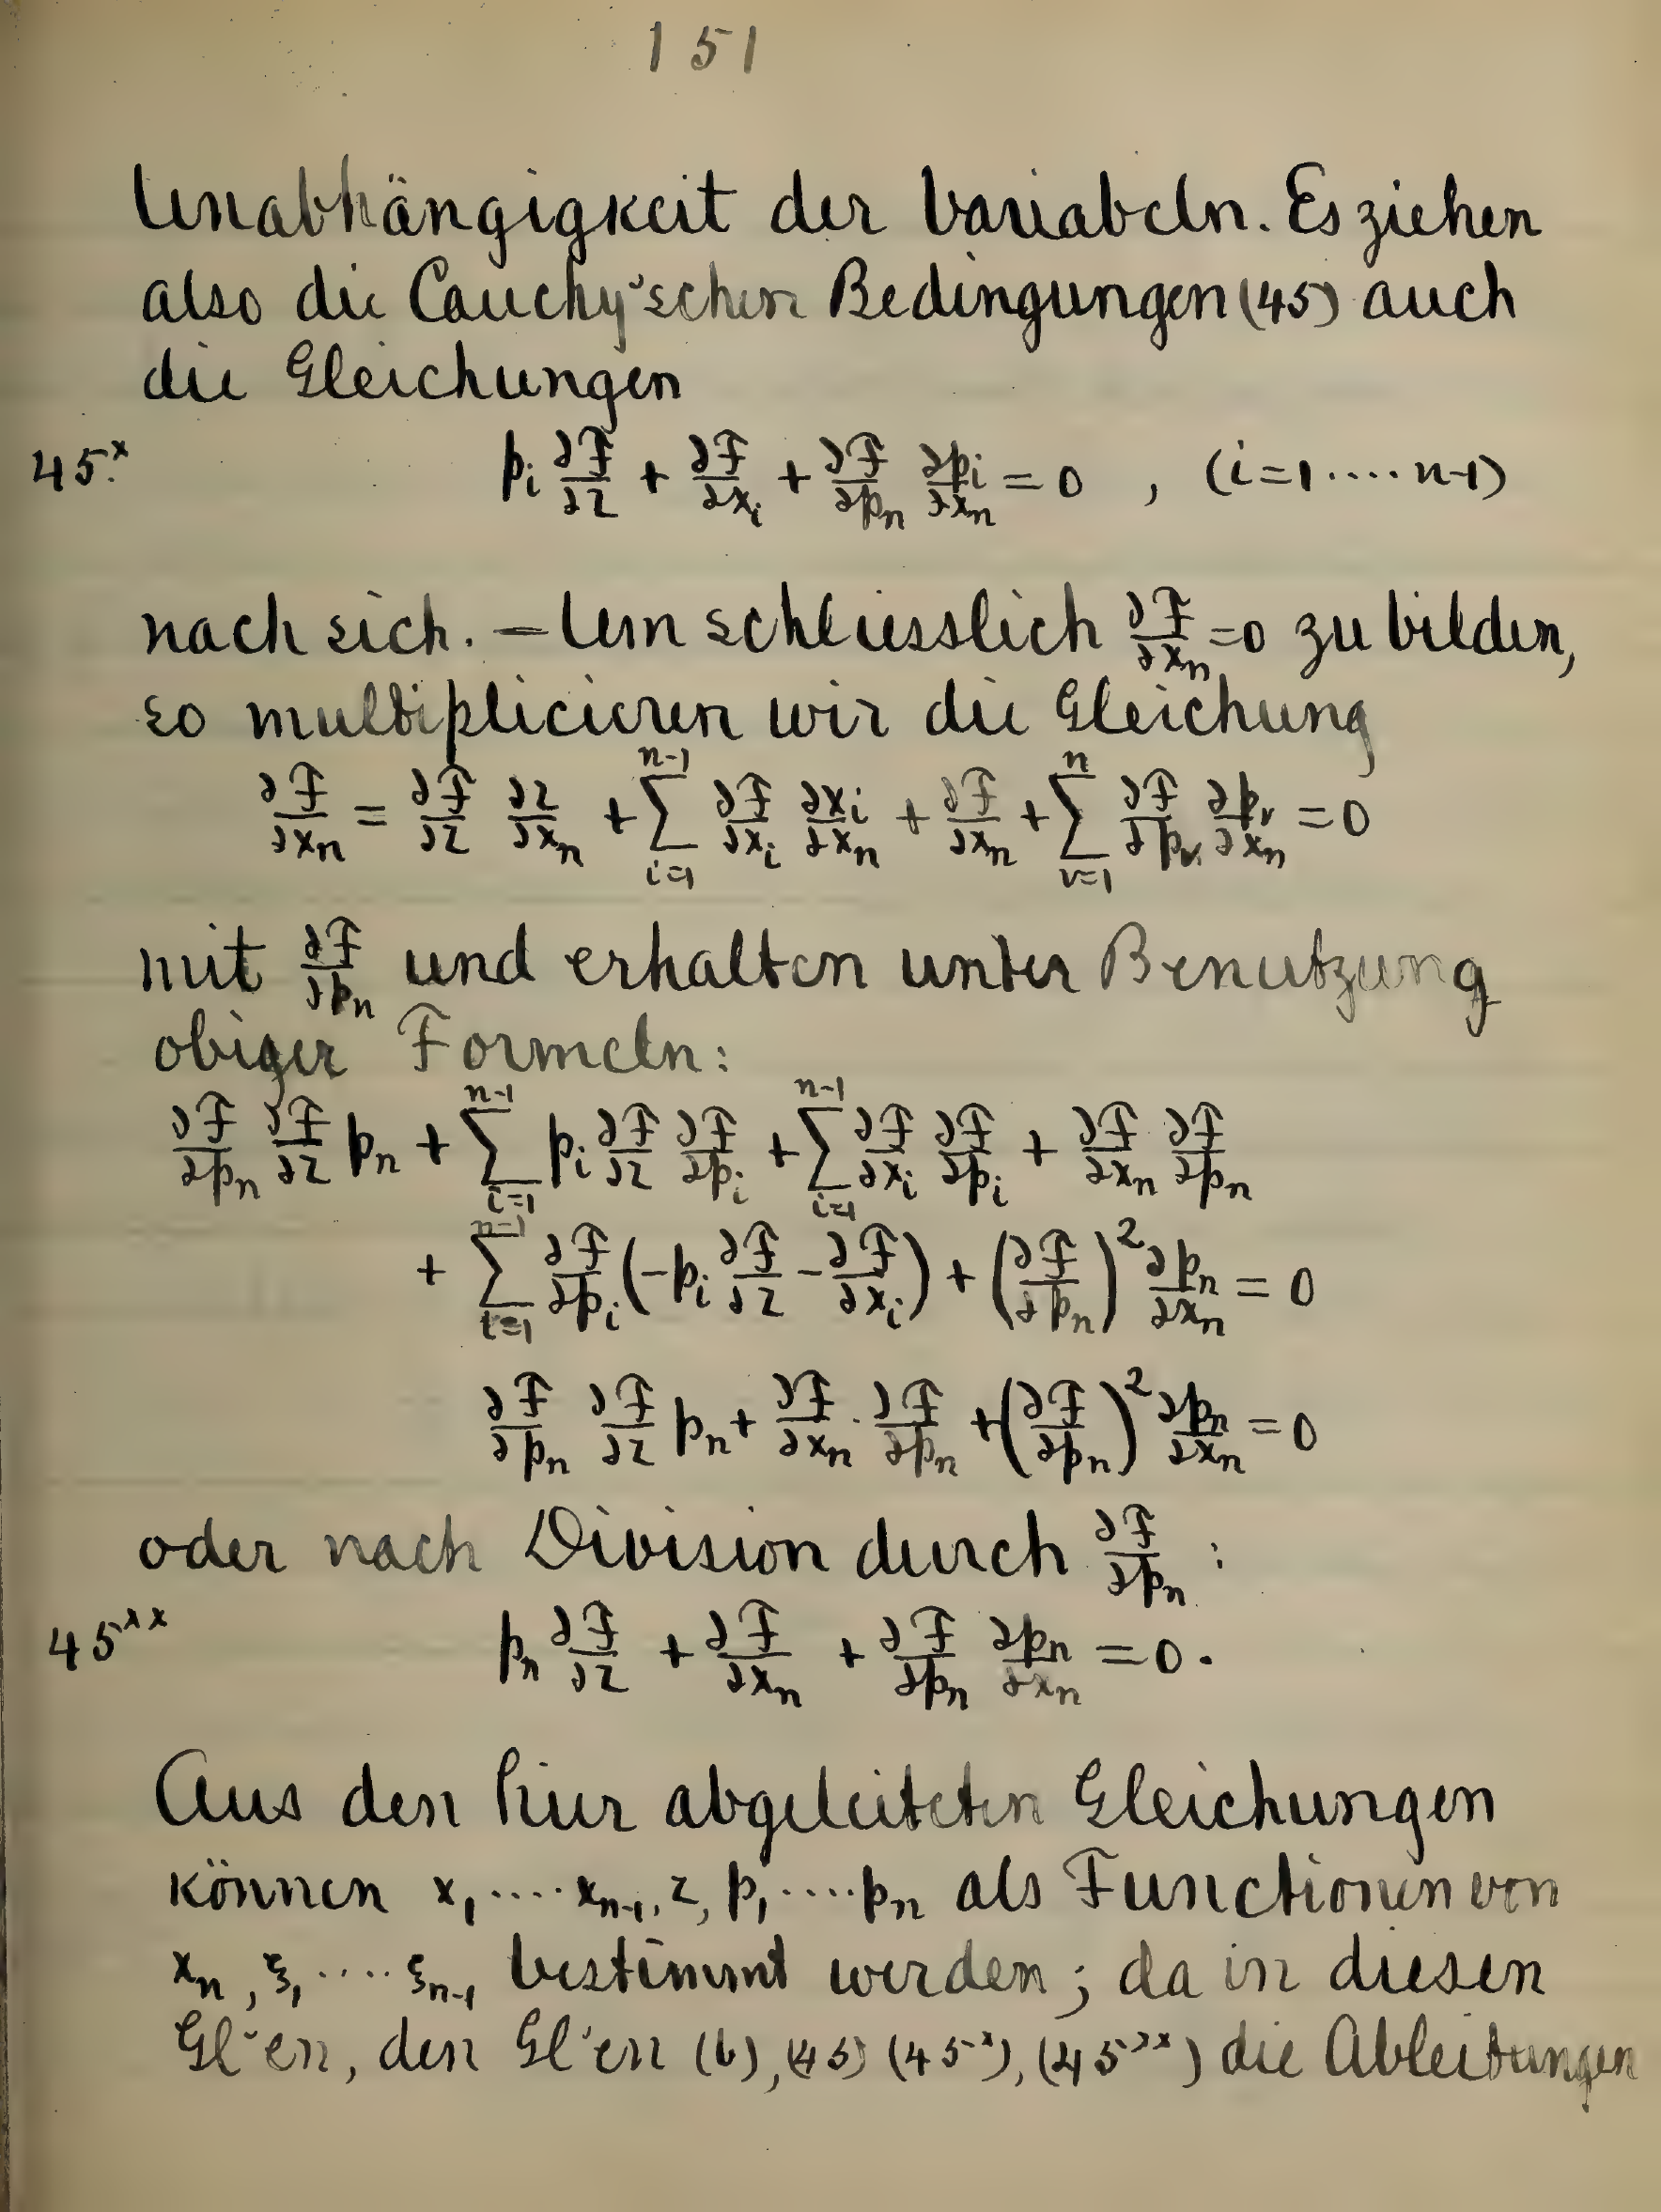 151
Unabhängigkeit der Variabeln. Es ziehen
also die Cauchy'schen Bedingungen (45) auch
die Gleichungen
45.ˣ p_i ∂F/∂z + ∂F/∂x_i + ∂F/∂p_n ∂p_i/∂x_n = 0 , (i=1....n-1)
nach sich. – Um schliesslich ∂F/∂x_n = 0 zu bilden,
so multiplicieren wir die Gleichung
∂F/∂x_n = ∂F/∂z ∂z/∂x_n + ∑_{i=1}^{n-1} ∂F/∂x_i ∂x_i/∂x_n + ∂F/∂x_n + ∑_{ν=1}^{n} ∂F/∂p_ν ∂p_ν/∂x_n = 0
mit ∂F/∂p_n und erhalten unter Benutzung
obiger Formeln:
∂F/∂p_n ∂F/∂z p_n + ∑_{i=1}^{n-1} p_i ∂F/∂z ∂F/∂p_i + ∑_{i=1}^{n-1} ∂F/∂x_i ∂F/∂p_i + ∂F/∂x_n ∂F/∂p_n
+ ∑_{i=1}^{n-1} ∂F/∂p_i (-p_i ∂F/∂z - ∂F/∂x_i) + (∂F/∂p_n)² ∂p_n/∂x_n = 0
∂F/∂p_n ∂F/∂z p_n + ∂F/∂x_n · ∂F/∂p_n + (∂F/∂p_n)² ∂p_n/∂x_n = 0
oder nach Division durch ∂F/∂p_n :
45ˣˣ p_n ∂F/∂z + ∂F/∂x_n + ∂F/∂p_n ∂p_n/∂x_n = 0.
Aus den hier abgeleiteten Gleichungen
können x_1.....x_{n-1}, z, p_1.....p_n als Functionen von
x_n, ξ_1.....ξ_{n-1} bestimmt werden; da in diesen
Gl'en, den Gl'en (6), (45) (45ˣ), (45ˣˣ) die Ableitungen